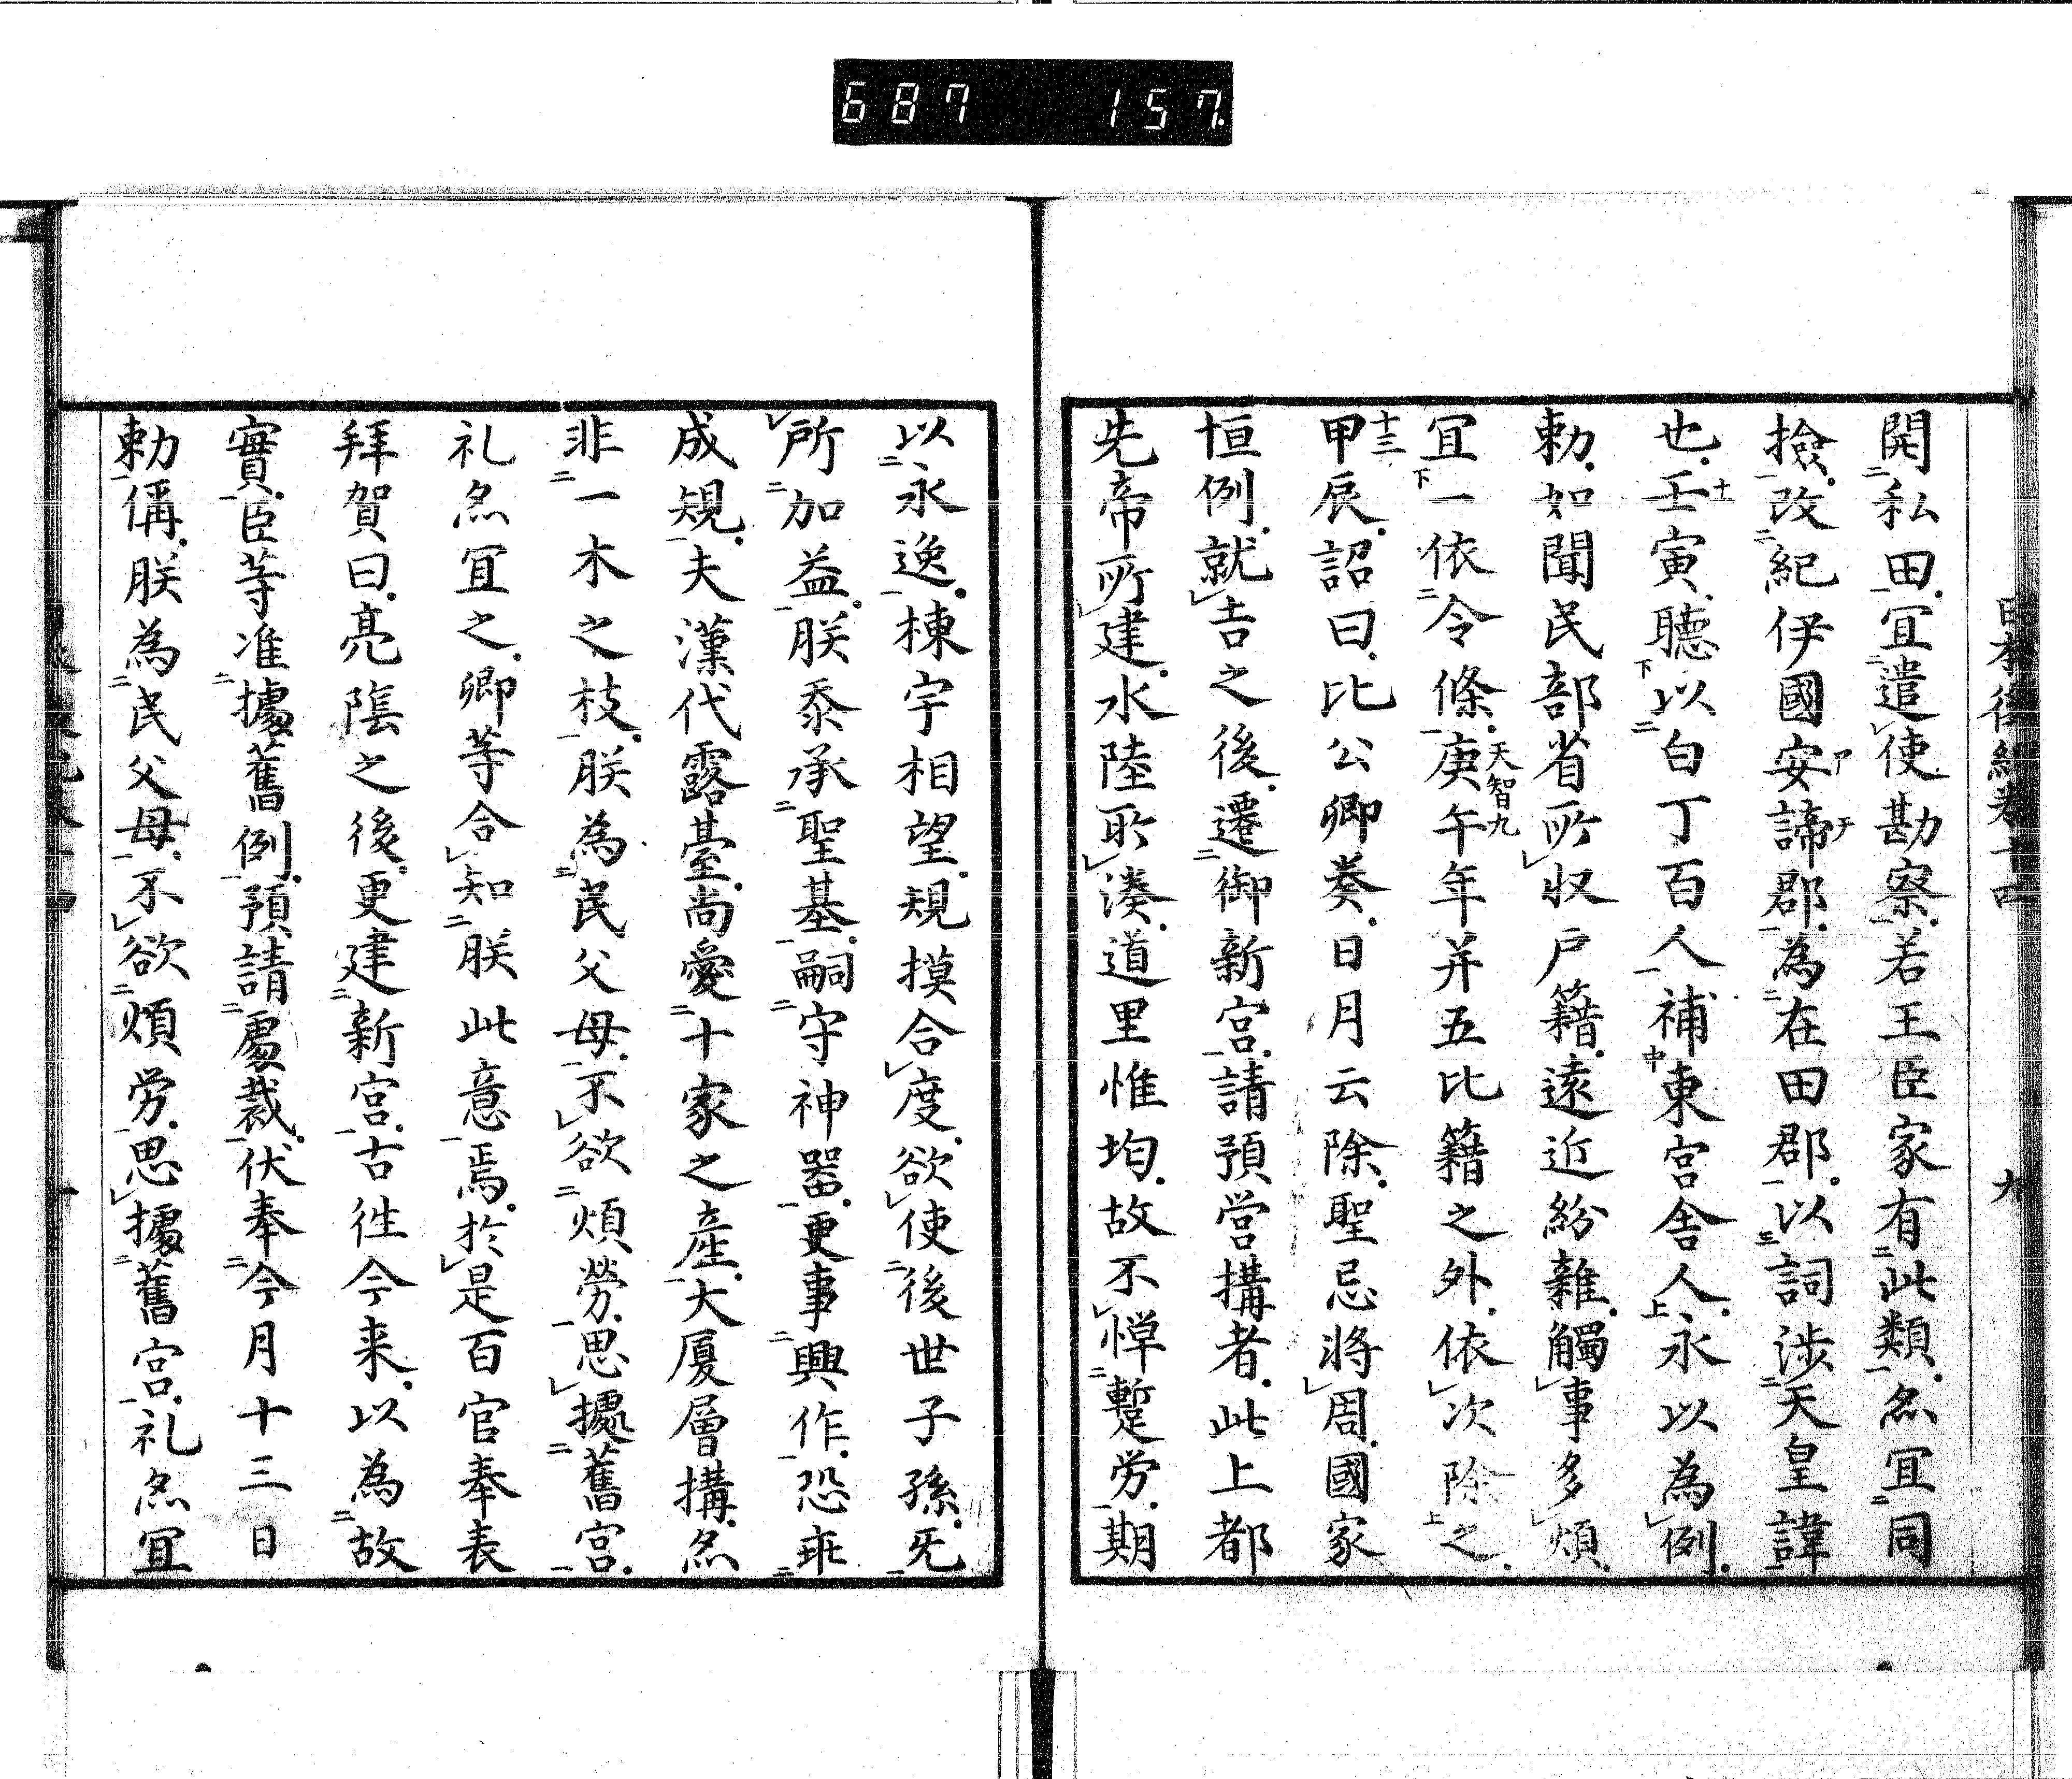 687 157
日本後紀卷十四 九
開私田宜遣使勘察若王臣家有此類亦宜同
撿改紀伊國安諦郡為在田郡以詞涉天皇諱
也壬寅聽以白丁百人補東宮舍人永以為例
勅如聞民部省所収戸籍遠近紛雜觸事多煩
宜一依令條庚午年并五比籍之外依次除之
甲辰詔曰比公卿奏日月云除聖忌將周國家
恒例就吉之後遷御新宮請預営搆者此上都
先帝所建水陸所湊道里惟均故不憚蹔労期
以永逸棟宇相望規摸合度欲使後世子孫旡
所加益朕忝承聖基嗣守神器更事興作恐乖
成規夫漢代露臺尚愛十家之產大厦層搆亦
非一木之枝朕為民父母不欲煩勞思據舊宮
礼亦宜之卿等合知朕此意焉於是百官奉表
拜賀曰亮隂之後更建新宮古徃今来以為故
實臣等准據舊例預請處裁伏奉今月十三日
勅偁朕為民父母不欲煩労思據舊宮礼亦宜